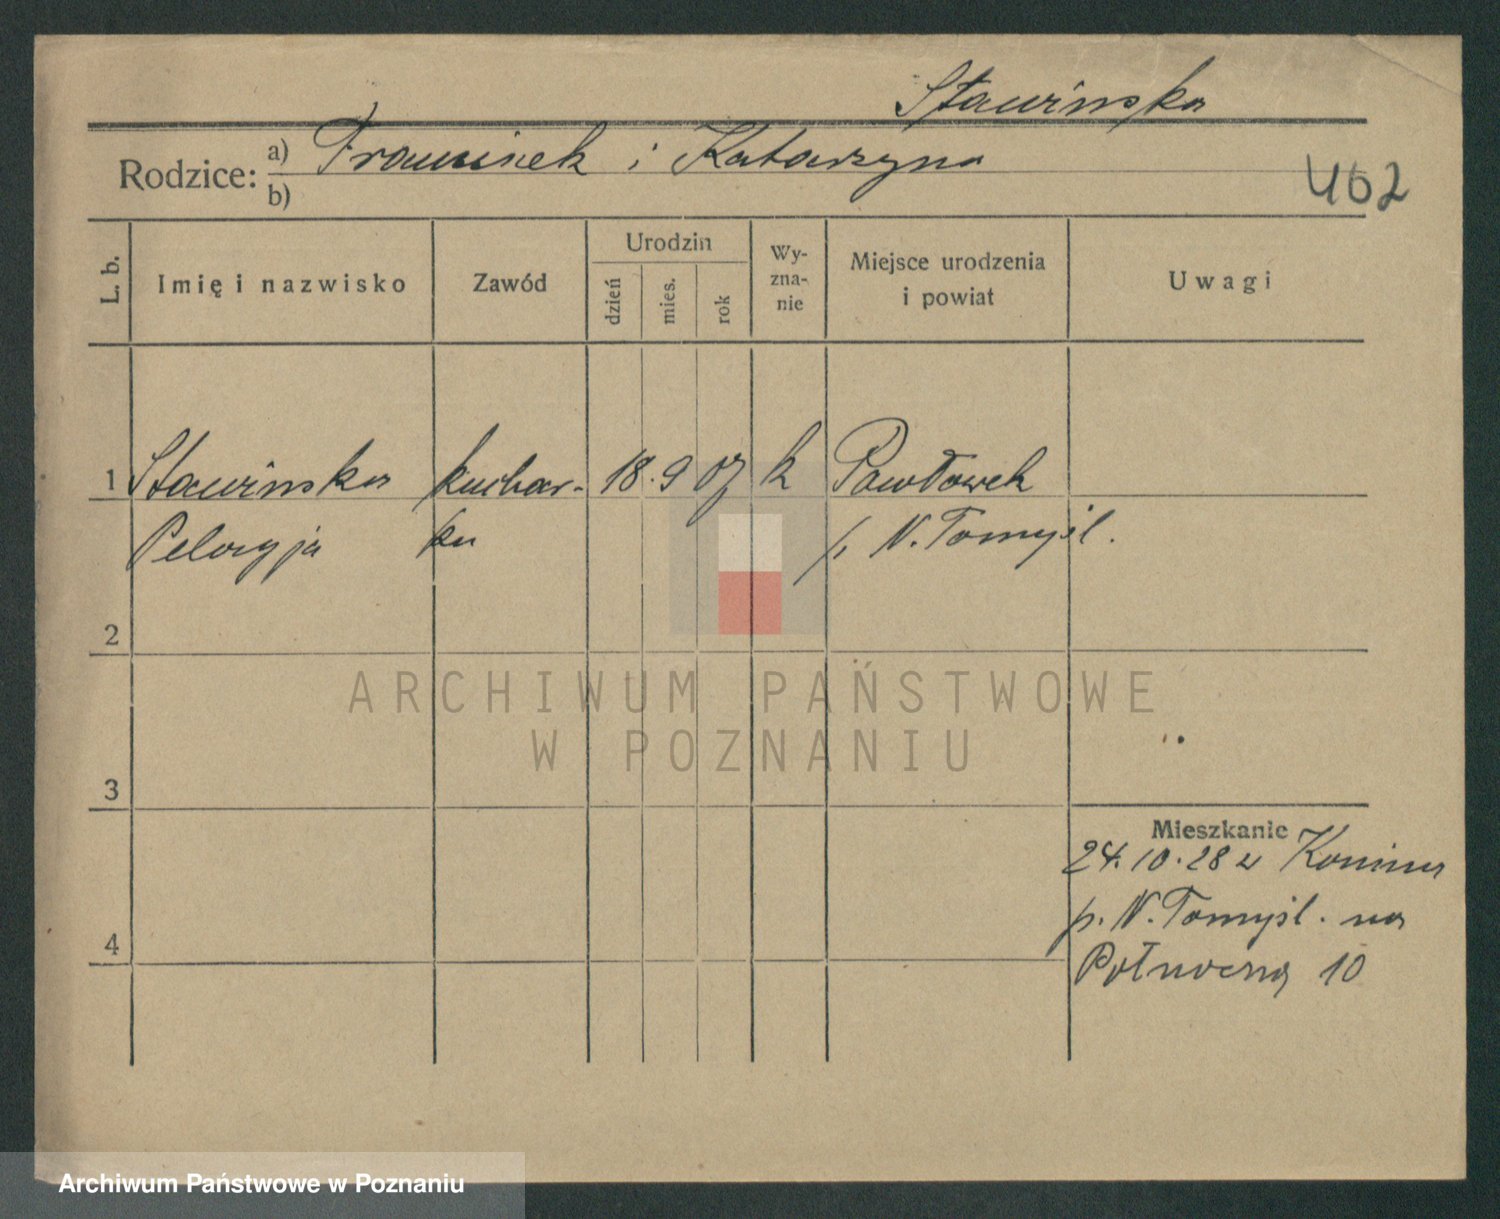 Stawińska
Rodzice: a) Franciszek i Katarzyna
b)
462
L. b.
Imię i nazwisko
Zawód
Urodzin
dzień
mies.
rok
Wy-
zna-
nie
Miejsce urodzenia
i powiat
Uwagi
1 Stawińska kuchar- 18. 9 07 k Pawłówek
Pelagja ka p. N. Tomyśl.
2
ARCHIWUM PAŃSTWOWE
W POZNANIU
3
Mieszkanie
24.10.28 z Konina
4 p. N. Tomyśl. na
Północną 10
Archiwum Państwowe w Poznaniu